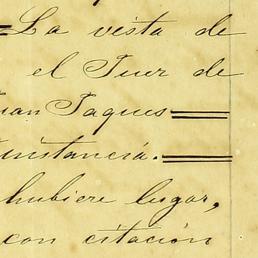 La vista de
el Juez de
Juan Jaques
instancia.
hubiere lugar,
con citación